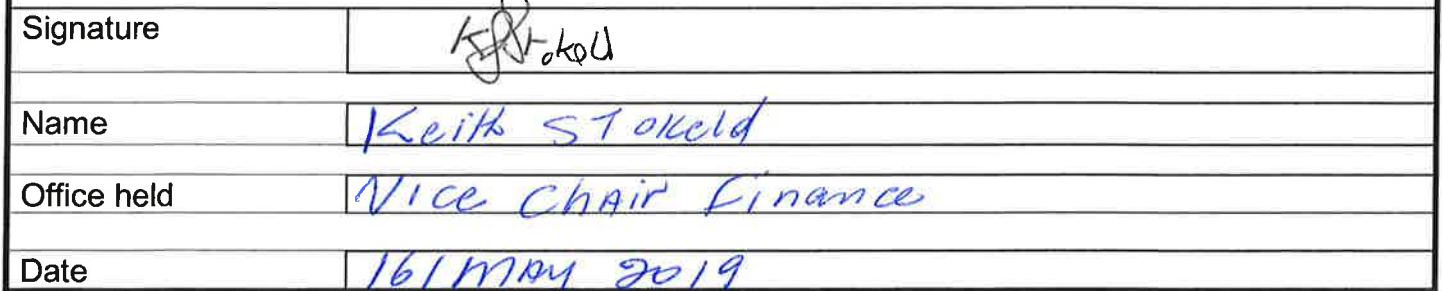 Signature K J Stokeld
Name Keith STokeld
Office held Vice Chair Finance
Date 16/MAY 2019